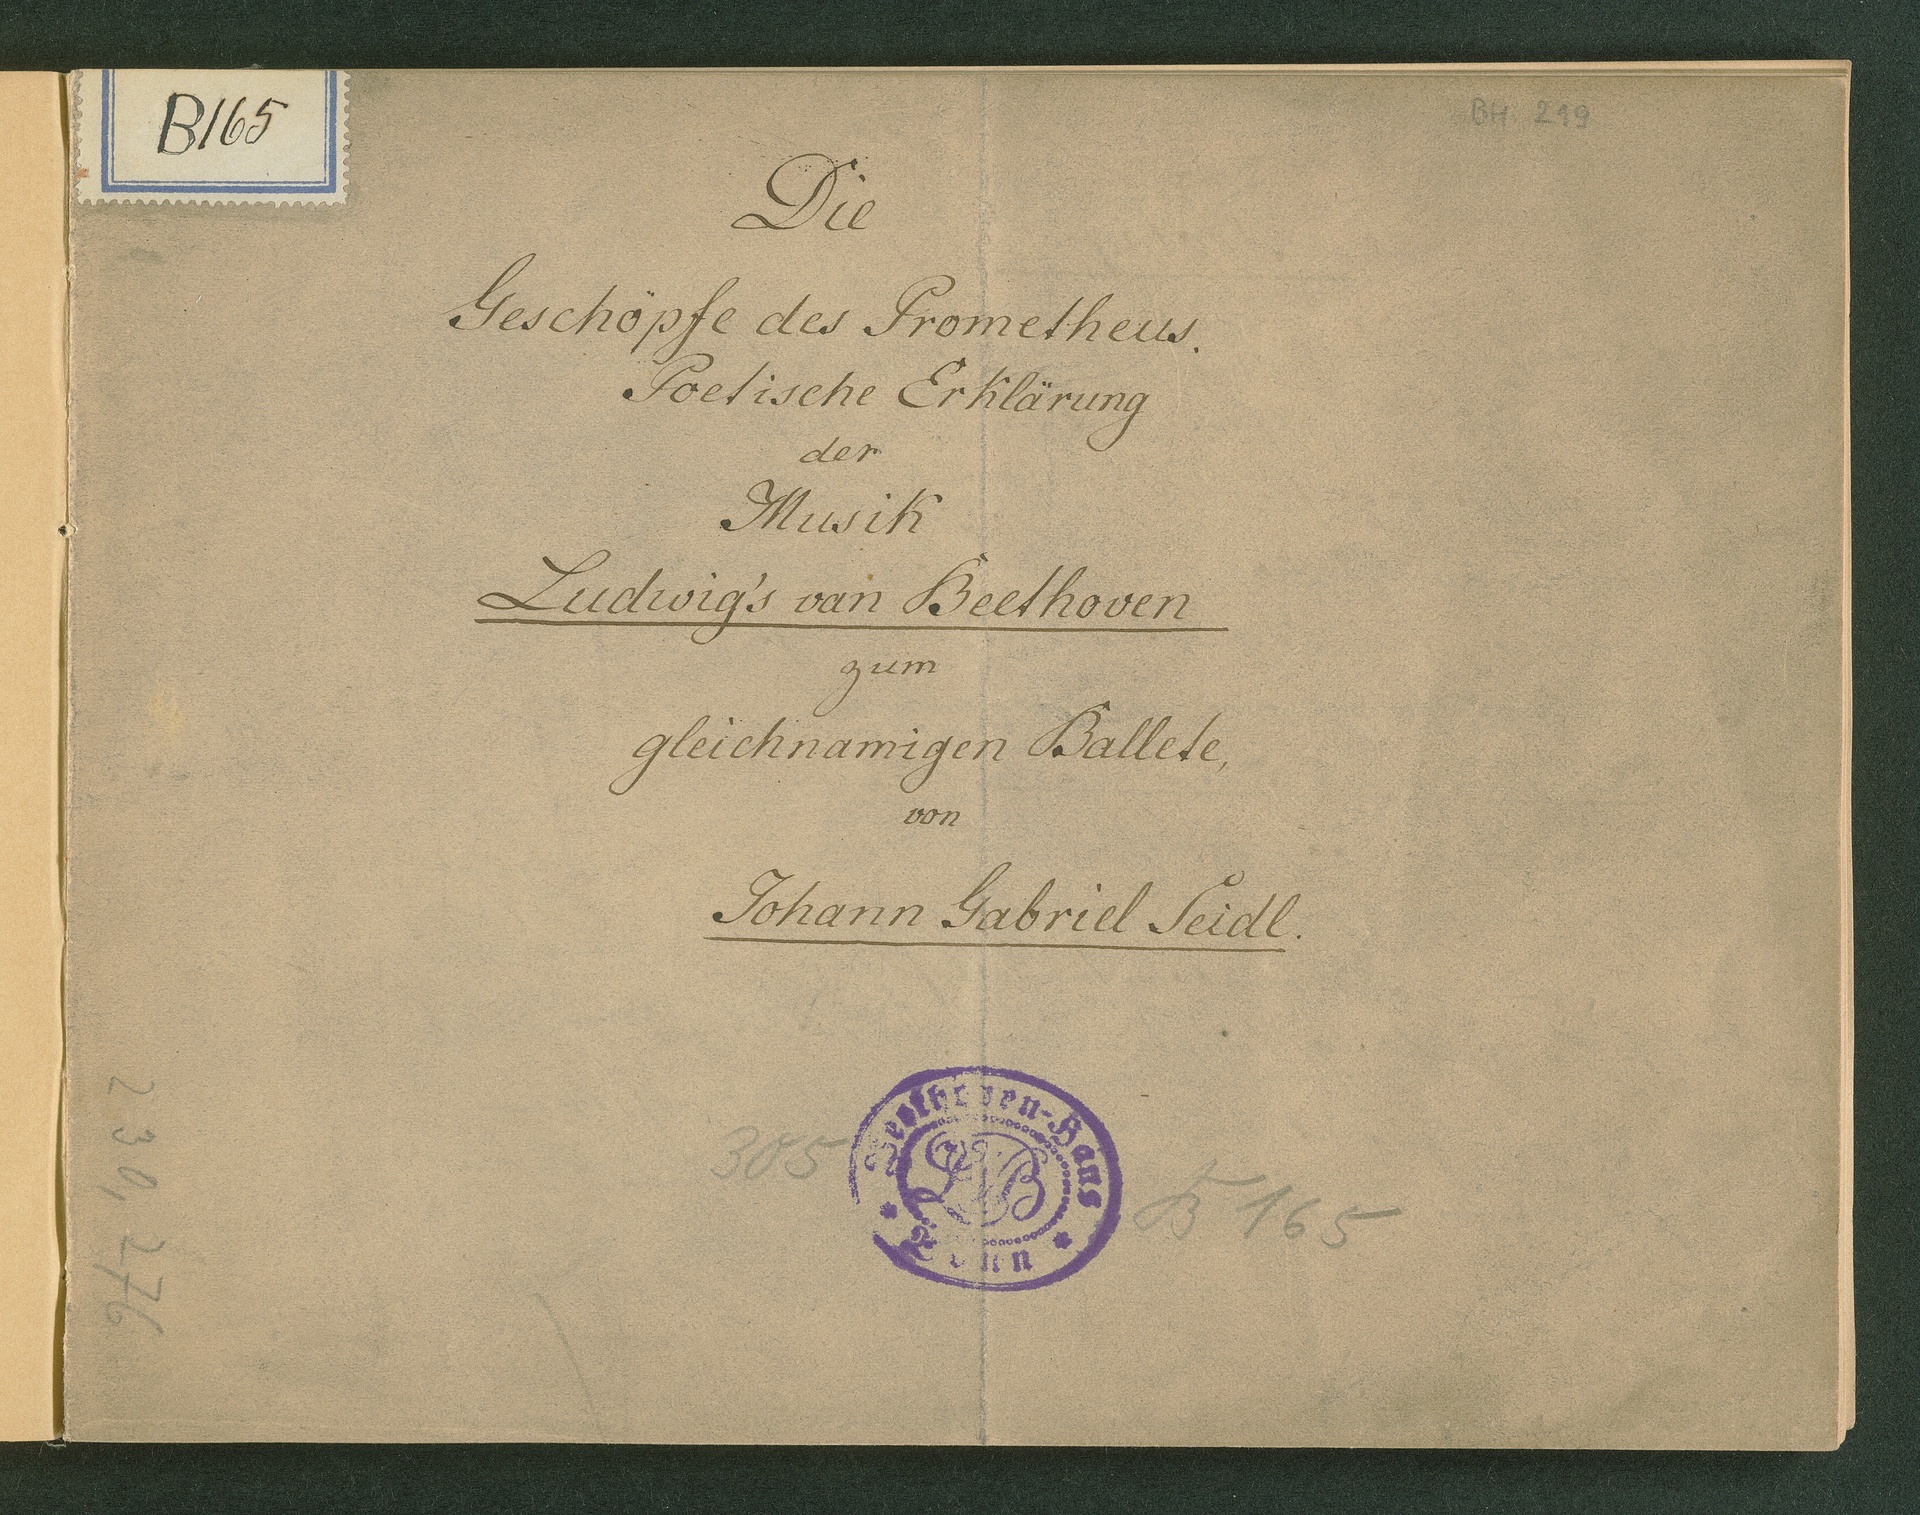 B165
BH 219
Die
Geschöpfe des Prometheus.
Poetische Erklärung
der
Musik
Ludwig's van Beethoven
zum
gleichnamigen Ballete,
von
Johann Gabriel Seidl.
Beethoven-Haus
LVB
Bonn
305
B 165
230, 276